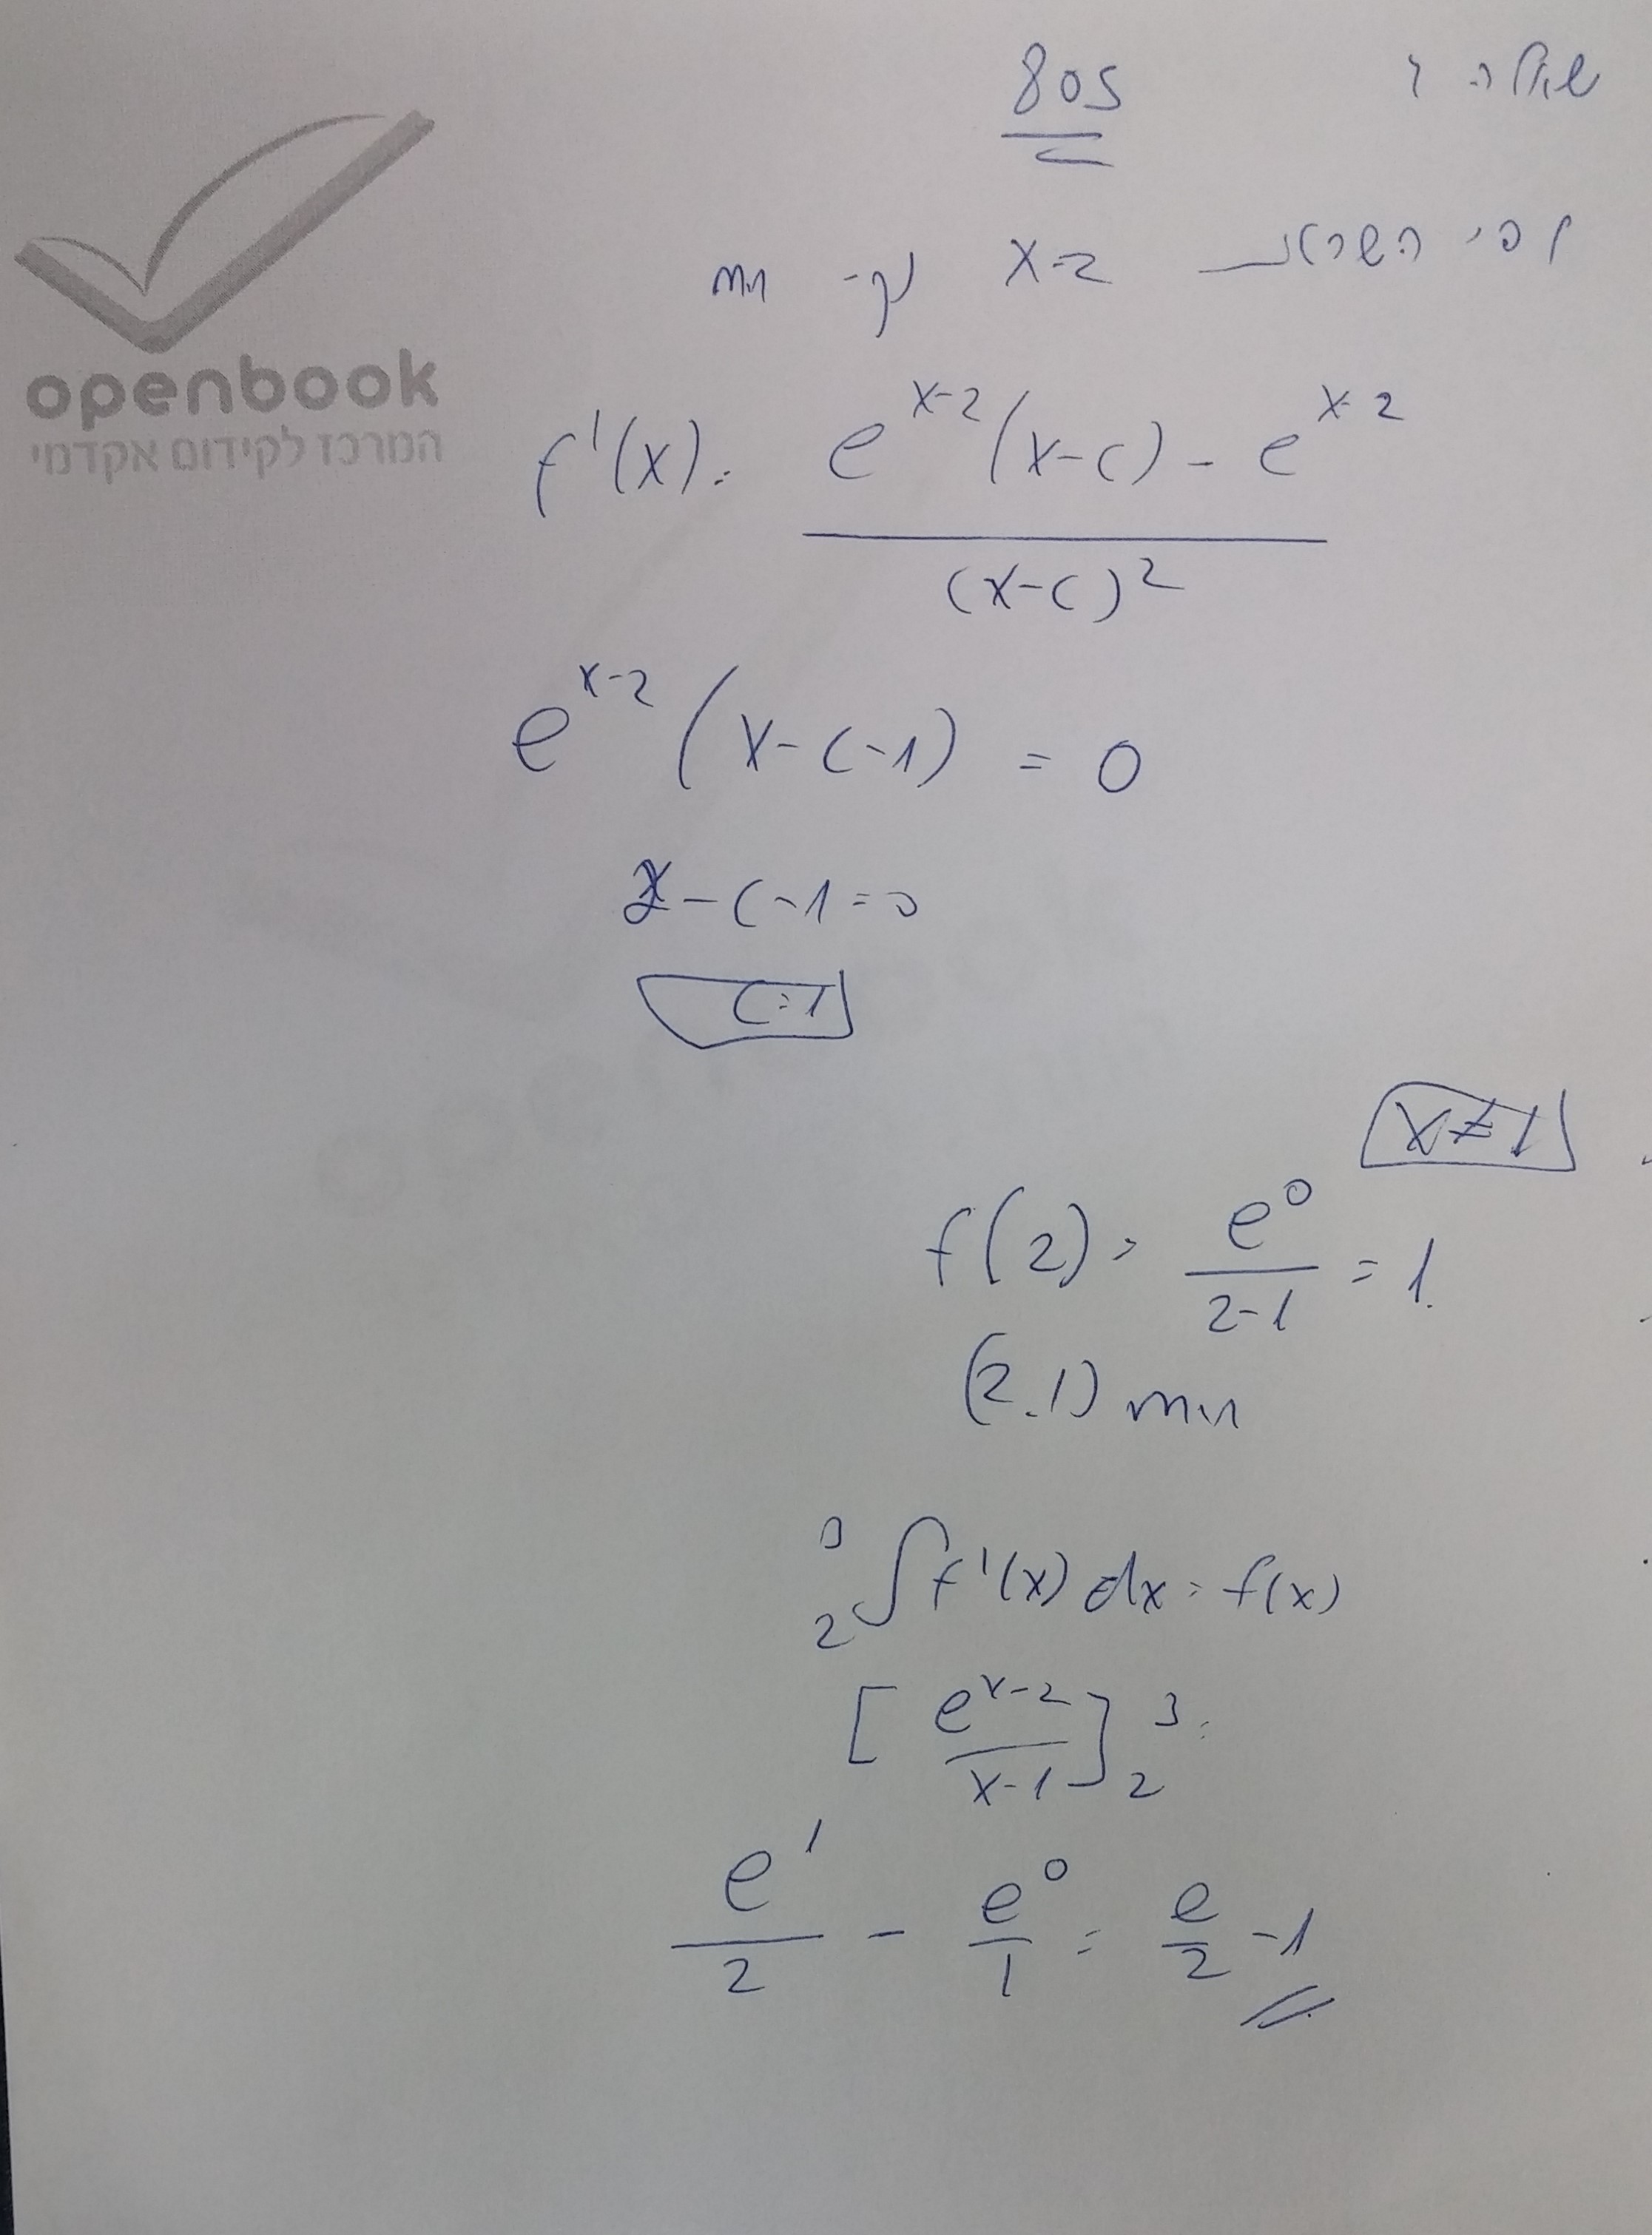 שאלה 4
805
openbook
המרכז לקידום אקדמי
לפי השרטוט x=2 נק' min
f'(x) = \frac{e^{x-2}(x-c) - e^{x-2}}{(x-c)^2}
e^{x-2}(x-c-1) = 0
2-c-1=0
c=1
x≠1
f(2) = \frac{e^0}{2-1} = 1.
(2.1) min
_2∫^3 f'(x) dx = f(x)
[\frac{e^{x-2}}{x-1}]_2^3 =
\frac{e^1}{2} - \frac{e^0}{1} = \frac{e}{2} -1